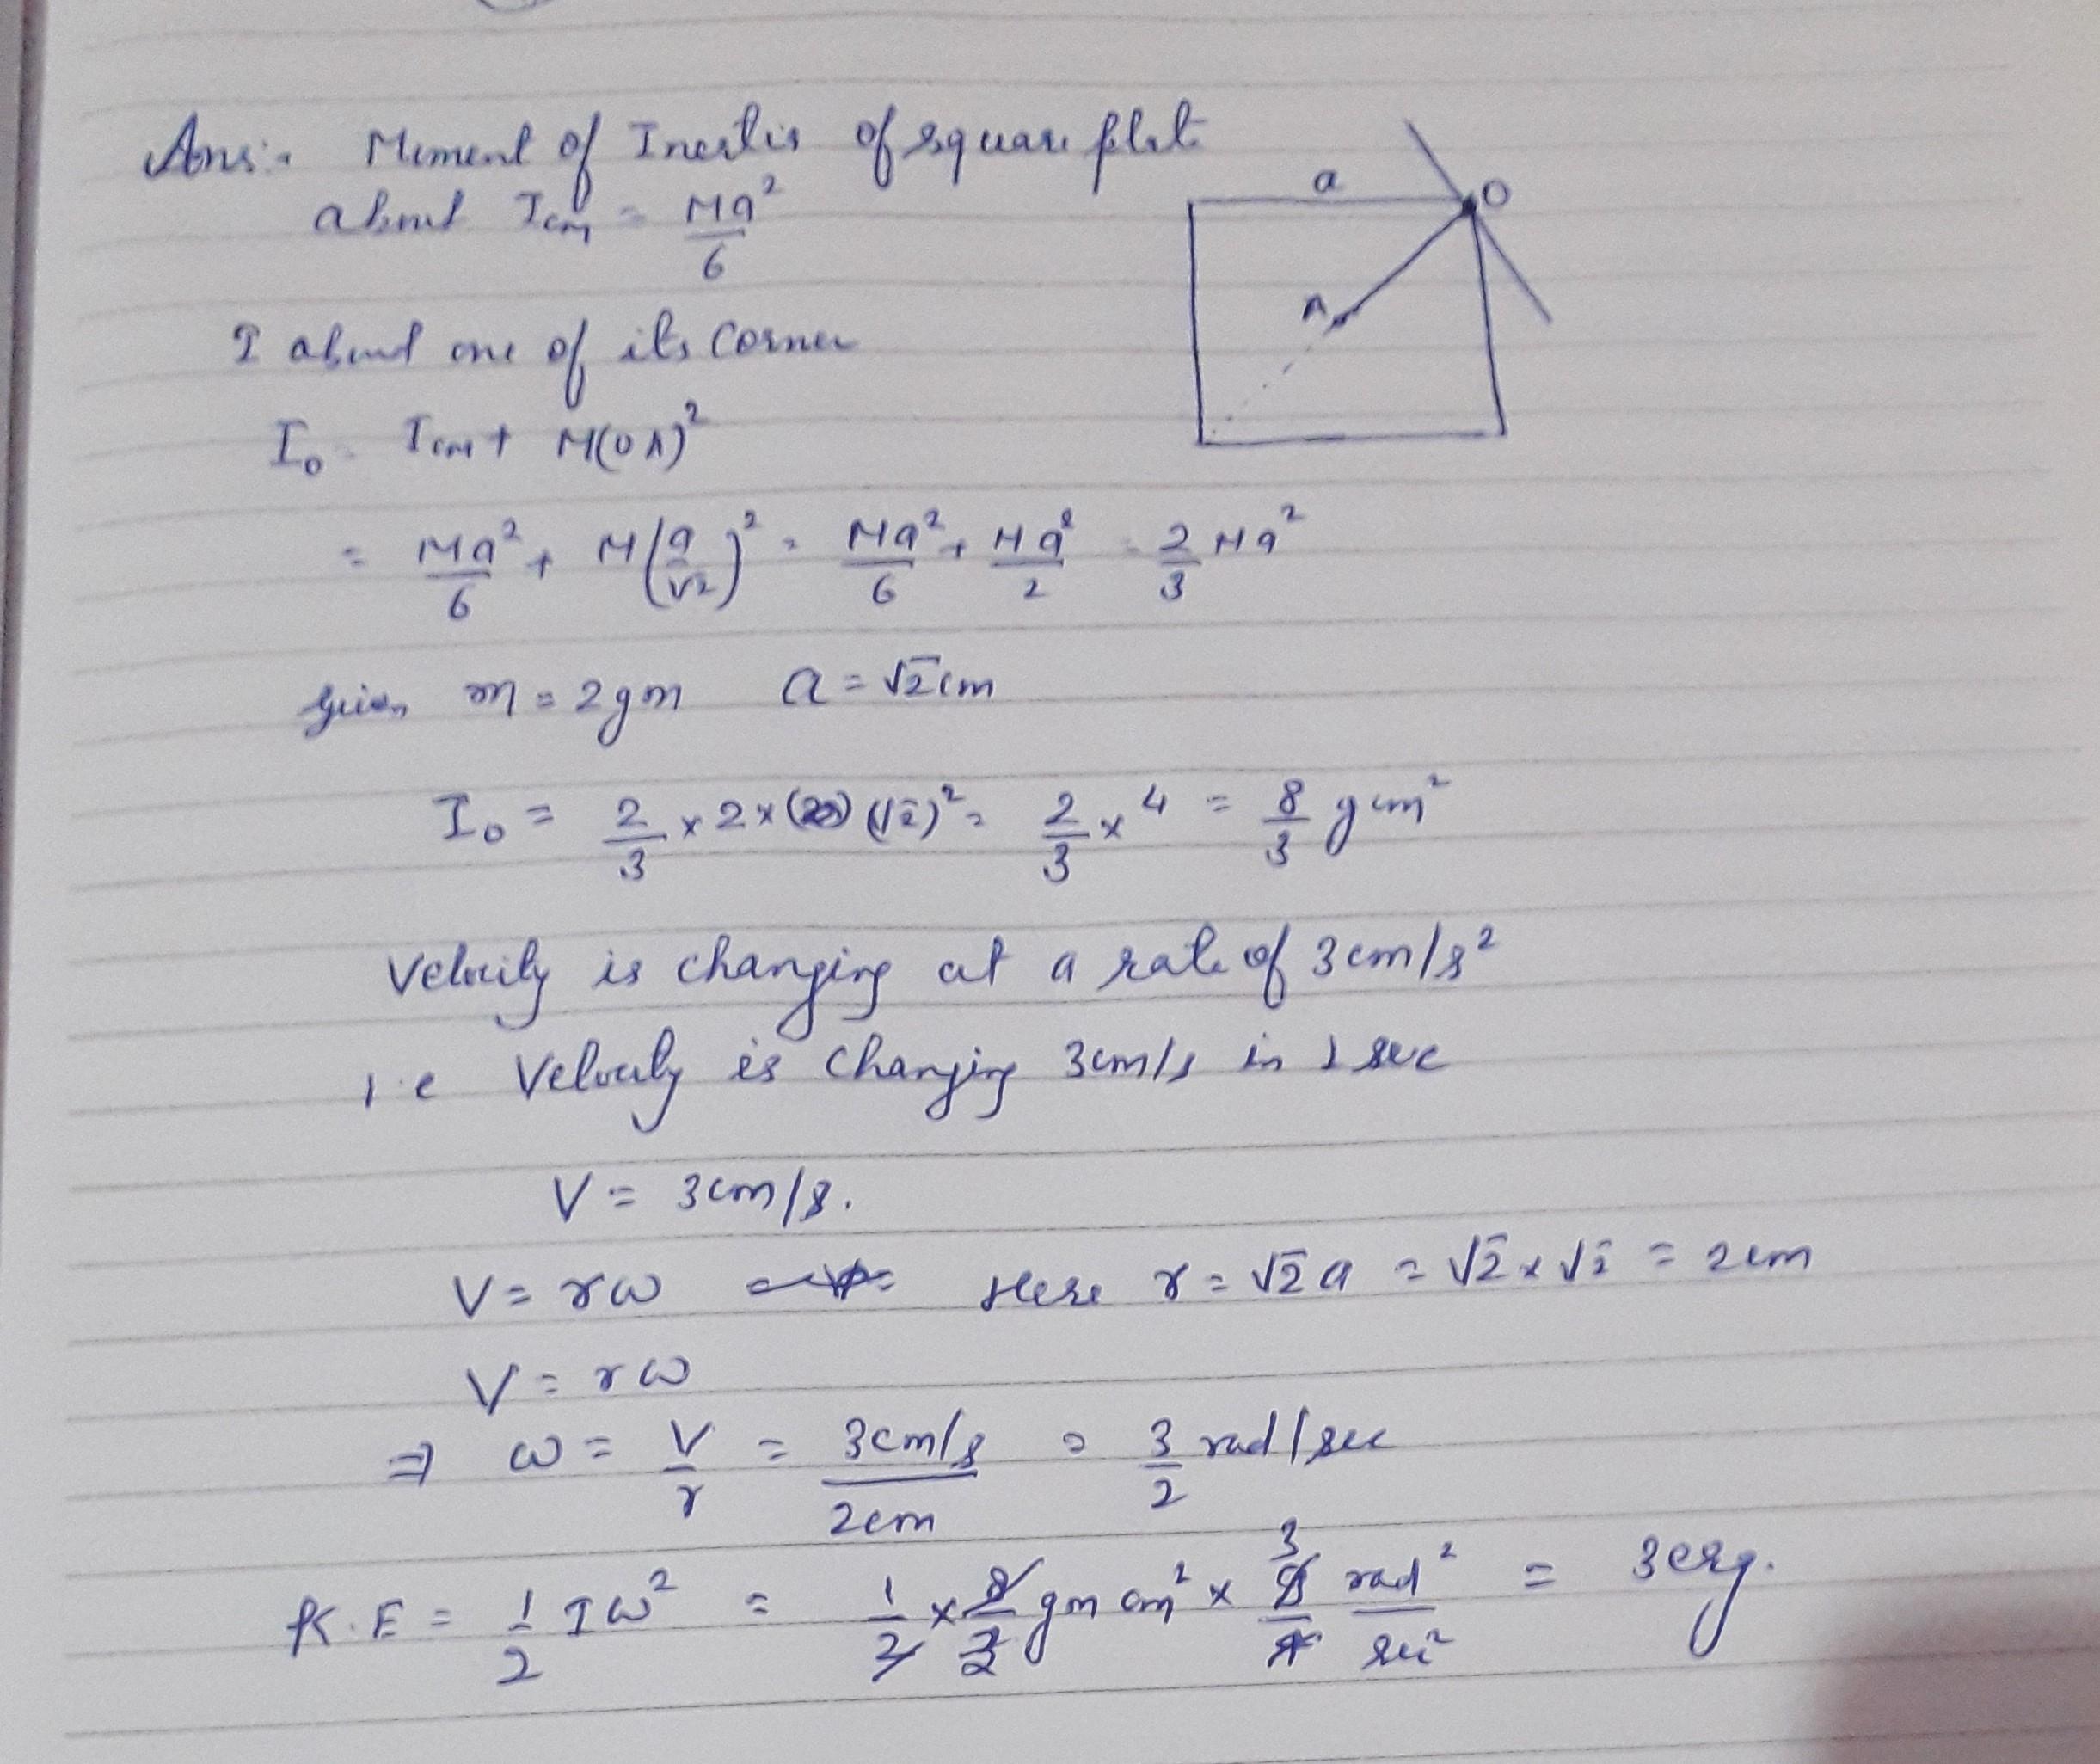 Ans:- Moment of Inertia of square plate
about Icm = Ma²/6
a
O
A
I about one of its corner
I₀ = Icm + M(OA)²
= Ma²/6 + M(a/√2)² = Ma²/6 + Ma²/2 = 2/3 Ma²
given m = 2gm a = √2cm
I₀ = 2/3 × 2 × (√2)² = 2/3 × 4 = 8/3 gcm²
Velocity is changing at a rate of 3cm/s²
i.e Velocity is changing 3cm/s in 1 sec
V = 3cm/s.
V = rω Here r = √2 a = √2 × √2 = 2cm
V = rω
⇒ ω = V/r = 3cm/s / 2cm = 3/2 rad/sec
K.E = 1/2 Iω² = 1/2 × 8/3 gm cm² × 9/4 rad²/sec² = 3erg.